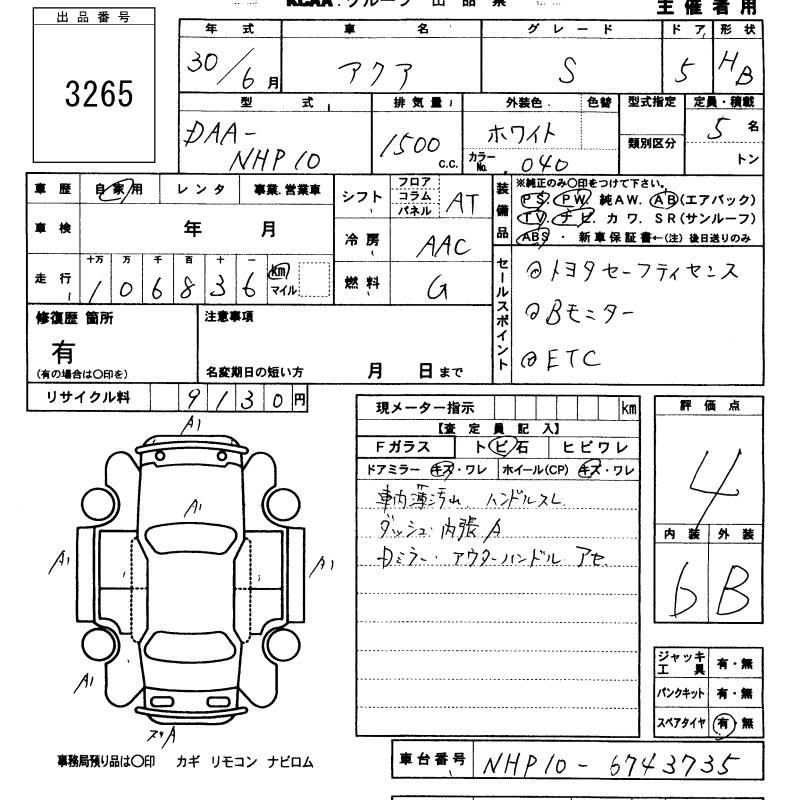 KCAA.グループ 出品票
主催者用
出品番号
3265
年式 車名 グレード ドア 形状
30/6月 アクア S 5 HB
型式 排気量 外装色 色替 型式指定 定員・積載
DAA-NHP10 1500 c.c. ホワイト カラーNo. 040 類別区分 5名 トン
車歴 自家用 レンタ 事業.営業車
車検 年 月
走行 十万 万 千 百 十 一 km マイル
106836
シフト フロア コラム パネル AT
冷房 AAC
燃料 G
装備品
※純正のみ〇印をつけて下さい。
PS. PW. 純AW. AB(エアバック)
TV. ナビ. カワ. SR(サンルーフ)
ABS ・ 新車保証書←(注)後日送りのみ
セールスポイント
◎トヨタセーフティセンス
◎Bモニター
◎ETC
修復歴 箇所
有
(有の場合は〇印を)
注意事項
名変期日の短い方 月 日まで
リサイクル料 9130円
現メーター指示 km
【査定員記入】
Fガラス トビ石 ヒビワレ
ドアミラー キズ・ワレ ホイール(CP) キズ・ワレ
車内薄汚れ ハンドルスレ
ダッシュ・内張A
Dミラー・アウターハンドル アセ
評価点
4
内装 外装
6 B
A1
A1
A1
A1
A1
スリA
ジャッキ工具 有・無
パンクキット 有・無
スペアタイヤ 有・無
事務局預り品は〇印 カギ リモコン ナビロム
車台番号 NHP10-6743735